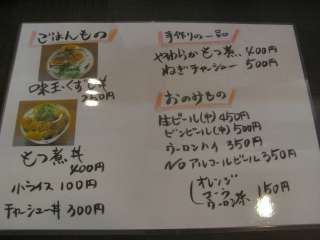 ごはんもの
味玉くずし丼
250円
もつ煮丼
400円
小ライス 100円
チャーシュー丼 300円
手作りの一品
やわらかもつ煮 400円
ねぎチャーシュー 500円
おのみもの
生ビール(中) 450円
ビンビール(中) 500円
ウーロンハイ 350円
NOアルコールビール 350円
オレンジ
コーラ
ウーロン茶 150円